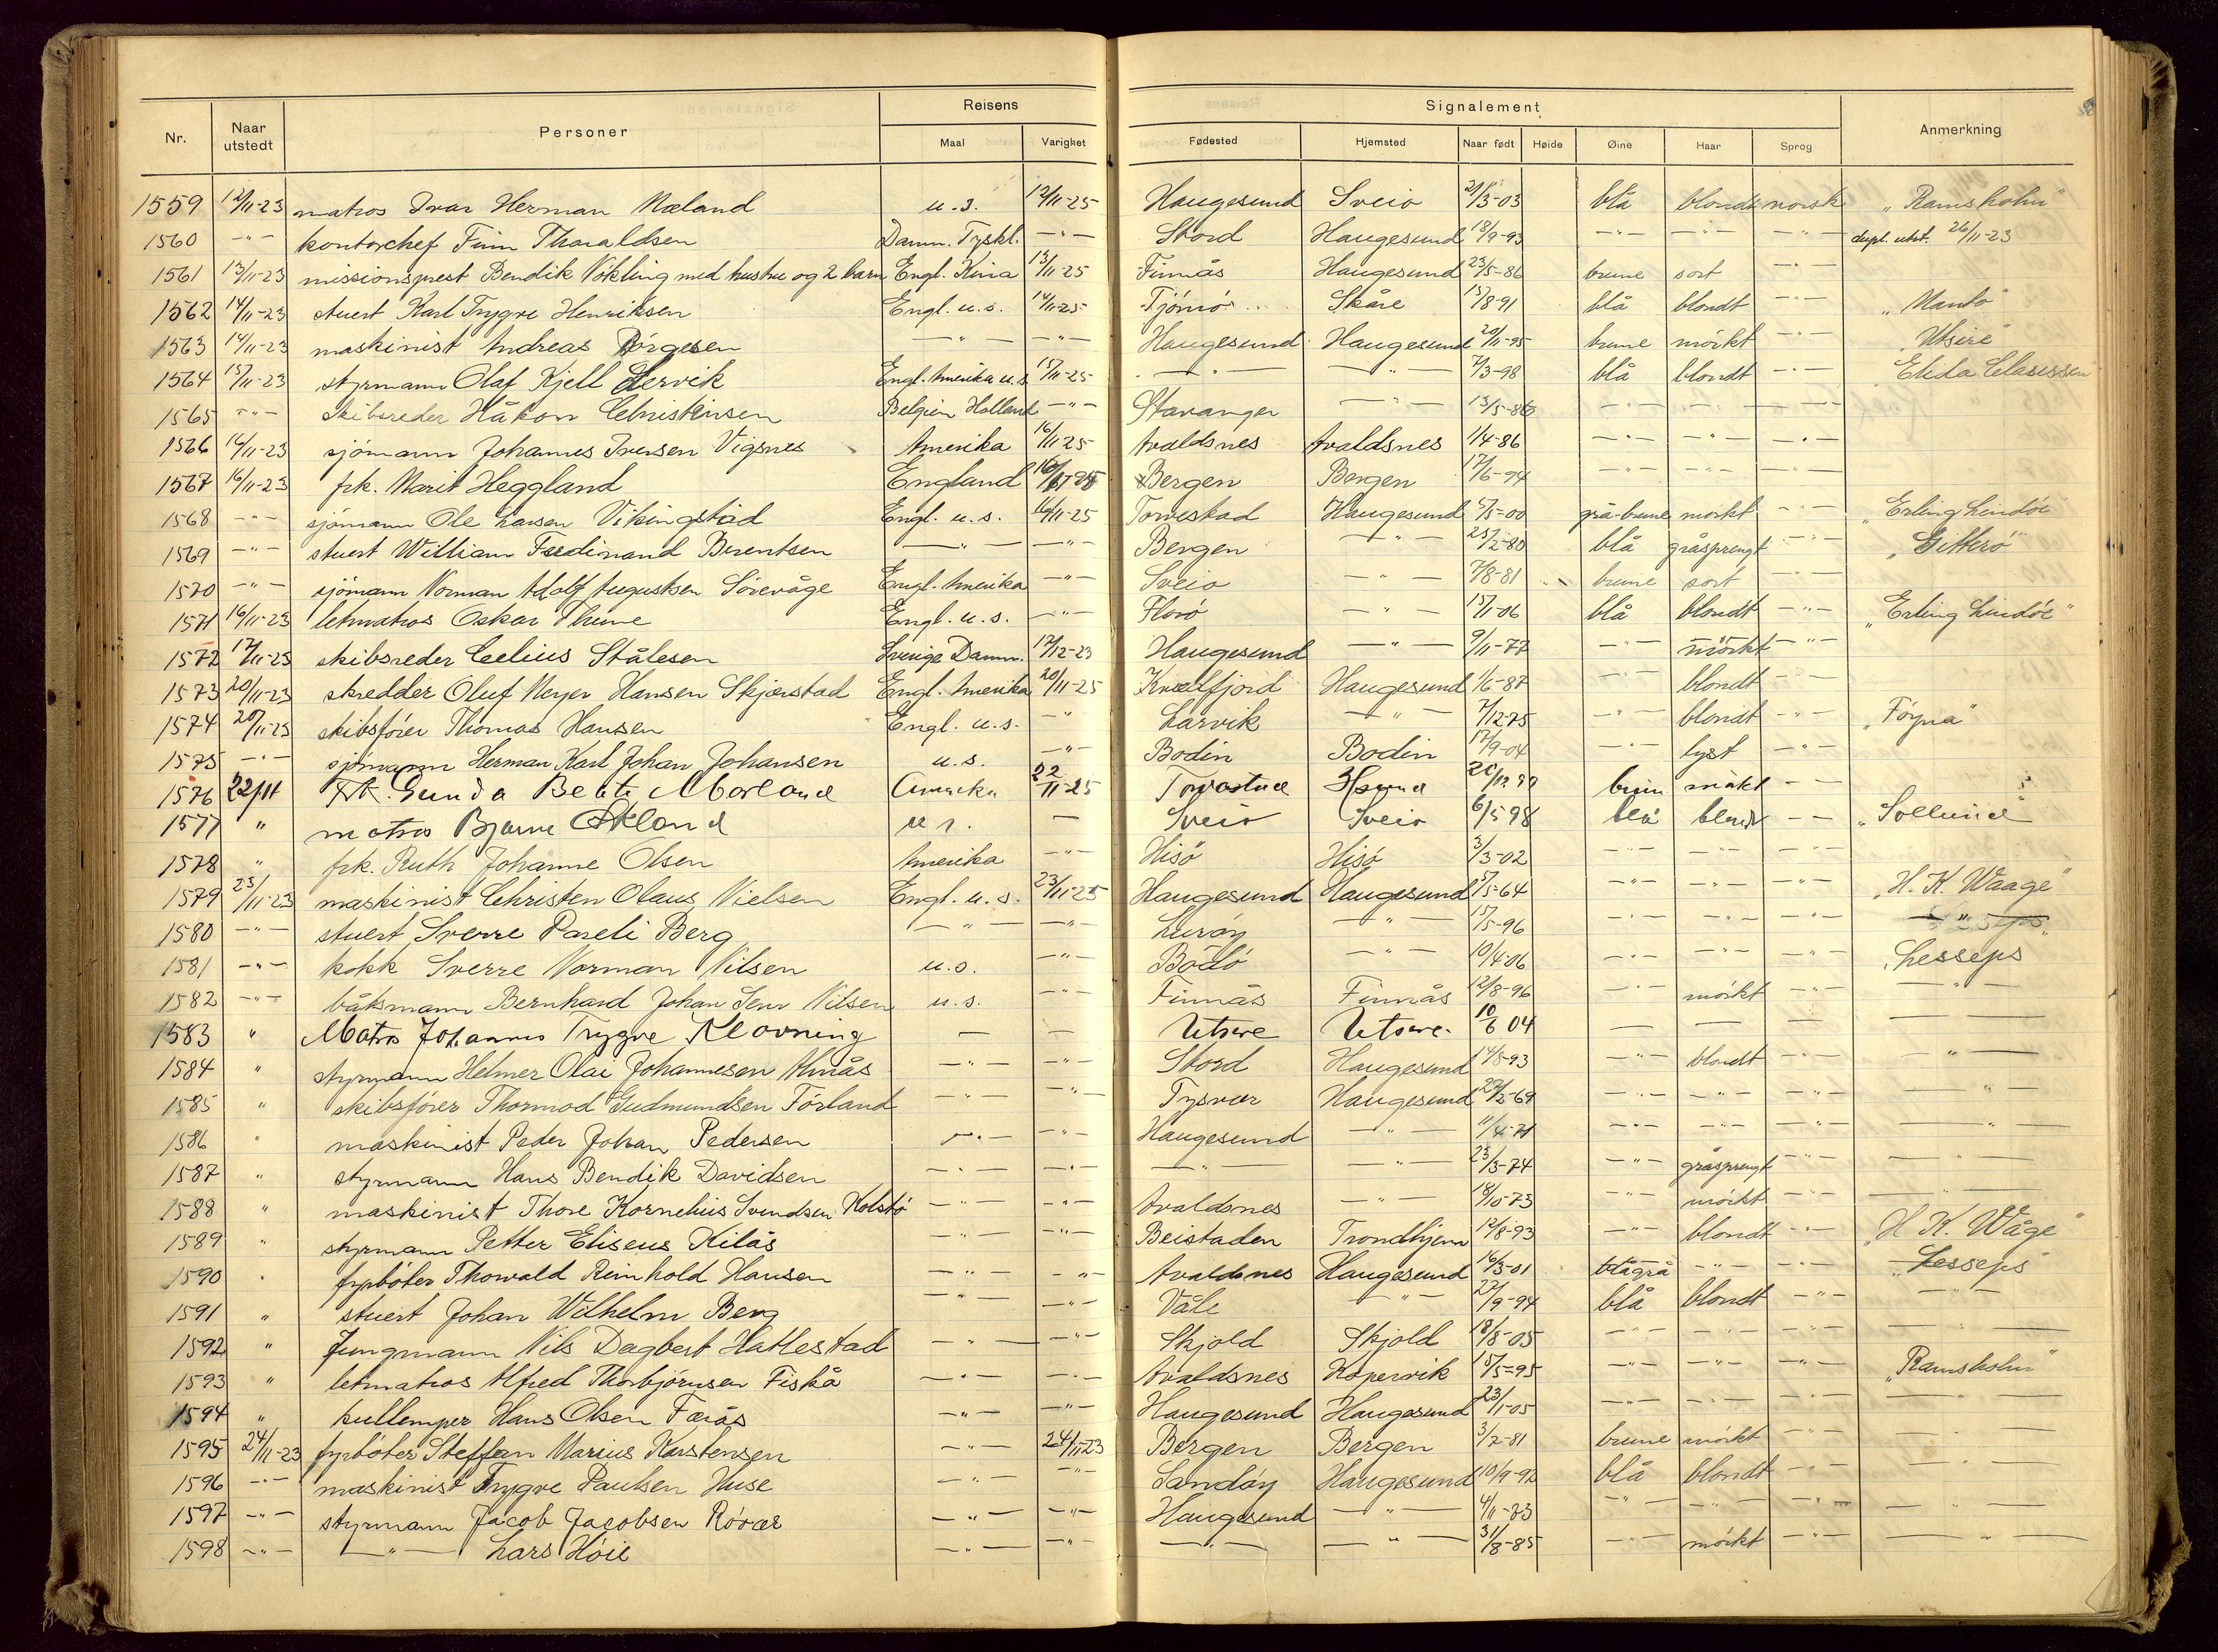 Nr. Naar utstedt Personer Reisens Maal Varighet Fødested Hjemsted Signalement Naar født Høide Øine Haar Sprog Anmerkning
1559 12/11-23 matros Ivar Herman Mæland u.s. 12/11-25 Haugesund Sveio 21/3-03 blå blondt norsk "Ramsholm"
1560 -"- kontorchef Finn Tharaldsen Danm. Tyskl. -"- Stord Haugesund 18/9-93 -"- -"- -"- dupl. utst. 26/11-23
1561 13/11-23 missionsprest Bendik Vokling med hustru og 2 barn Engl. Kina 13/11-25 Finnås Haugesund 23/5-86 brune sort -"-
1562 14/11-23 stuert Karl Trygve Henriksen Engl. u.s. 14/11-25 Tjömö Skåre 15/8-91 blå blondt -"- "Manto"
1563 14/11-23 maskinist Andreas Börgesen -"- -"- Haugesund Haugesund 20/11-95 brune mörkt -"- "Utsire"
1564 15/11-23 styrmann Olaf Kjell Lervik Engl. Amerika u.s. 15/11-25 -"- -"- 7/3-98 blå blondt -"- "Elida Clausen"
1565 -"- skibsreder Håkon Christensen Belgien Holland -"- Stavanger -"- 13/5-86 -"- -"- -"-
1566 16/11-23 sjömann Johannes Iversen Vigsnes Amerika 16/11-25 Avaldsnes Avaldsnes 1/4-86 -"- -"- -"-
1567 16/11-23 frk. Marit Heggland England 16/11-25 Bergen Bergen 17/6-94 -"- -"- -"-
1568 -"- sjömann Ole Larsen Vikingstad Engl. u.s. 16/11-25 Torvestad Haugesund 5/5-00 grå-brune mörkt -"- "Erling Lindöe"
1569 -"- stuert William Ferdinand Berentsen -"- -"- Bergen -"- 25/2-80 blå gråsprengt -"- "Gitterö"
1570 -"- sjömann Norman Adolf Augustsen Sörevåge Engl. Amerika -"- Sveio -"- 7/8-81 brune sort -"-
1571 16/11-23 letmatros Oskar Thune Engl. u.s. -"- Florö -"- 15/1-06 blå blondt -"- "Erling Lindöe"
1572 17/11-23 skibsreder Celius Stålesen Sverige Danm. 17/12-23 Haugesund -"- 9/11-77 -"- mörkt -"-
1573 20/11-23 skredder Oluf Meyer Hansen Skjærstad Engl. Amerika 20/11-25 Kvæfjord Haugesund 1/6-87 blondt -"-
1574 20/11-23 skibsförer Thomas Hansen Engl. u.s. -"- Larvik -"- 7/12-75 -"- blondt -"- "Föyna"
1575 -"- sjömann Herman Karl Johan Johansen u.s. -"- Bodin Bodin 17/9-04 -"- lyst -"-
1576 22/11 Frk. Gunda Berte Mæland Amerika 22/11-25 Torvastad Hsund brun mökt
1577 " matros Bjarne Økland u s. — Sveio Sveio 6/5 98 blå blondt -- "Sollund"
1578 " frk. Ruth Johanne Olsen Amerika -"- Hisö Hisö 3/3-02 -"- -"- -"-
1579 23/11-23 maskinist Christen Olaus Nielsen Engl. u.s. 23/11-25 Haugesund Haugesund 5/5-64 -"- -"- -"- "H. K. Waage"
1580 -"- stuert Sverre Pareli Berg -"- -"- Luröy -"- 15/5-96 -"- -"- -"- -"-
1581 -"- kokk Sverre Norman Nilsen u.s. -"- Bodö -"- 10/4-06 -"- -"- "Lesseps"
1582 -"- båtsmann Bernhard Johan Sem Nilsen u.s. -"- Finnås Finnås 12/8-96 -"- mörkt -"- -"-
1583 " Matros Johannes Trygve Klovning — — Utsire Utsire 10/6 04 — — — —
1584 " styrmann Helmer Olai Johannesen Almås -"- -"- Stord Haugesund 14/8-93 -"- blondt -"- -"-
1585 " skibsförer Thormod Gudmundsen Förland -"- -"- Tysvær Haugesund 22/2-69 -"- -"- -"- -"-
1586 " maskinist Peder Johan Pedersen -"- -"- Haugesund -"- 11/4-71 -"- -"- -"- -"-
1587 " styrmann Hans Bendik Davidsen -"- -"- -"- -"- 23/3-74 -"- gråsprengt -"- -"-
1588 " maskinist Thore Kornelius Svendsen Kolstö -"- -"- Avaldsnes -"- 18/10-73 -"- mörkt -"- -"-
1589 " styrmann Petter Eliseus Kilås -"- -"- Beistaden Trondhjem 12/8-93 -"- blondt -"- "H K. Wåge"
1590 " fyrböter Thorvald Reinhold Hansen -"- -"- Avaldsnes Haugesund 16/3-01 blågrå -"- -"- "Lesseps"
1591 " stuert Johan Wilhelm Berg -"- -"- Våle -"- 22/9-94 blå blondt -"- -"-
1592 " Jungmann Nils Dagbert Hatlestad -"- -"- Skjold Skjold 18/8-05 -"- -"- -"- -"-
1593 " letmatros Alfred Thorbjörnsen Fiskå -"- -"- Avaldsnes Kopervik 15/5-95 -"- -"- -"- "Ramsholm"
1594 " kullemper Hans Olsen Færås -"- -"- Haugesund Haugesund 23/1-05 -"- -"- -"- -"-
1595 24/11-23 fyrböter Steffen Marius Karstensen -"- 24/11-23 Bergen Bergen 3/2-81 brune mörkt -"- -"-
1596 -"- maskinist Trygve Paulsen Huse -"- -"- Sandöy Haugesund 10/9-92 blå blondt -"- -"-
1597 -"- styrmann Jacob Jacobsen Rövær -"- -"- Haugesund -"- 4/11-83 -"- -"- -"- -"-
1598 -"- -"- Lars Höie -"- -"- -"- -"- 31/8-85 -"- mörkt -"- -"-